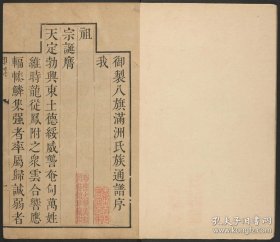 御製八旗滿洲氏族通譜序
我
祖
宗誕膺
天定勃興東土德綏威讋奄甸萬姓
維時龍從鳳附之眾雲合響應
輻輳鱗集强者率屬歸誠弱者
孔夫子旧书网